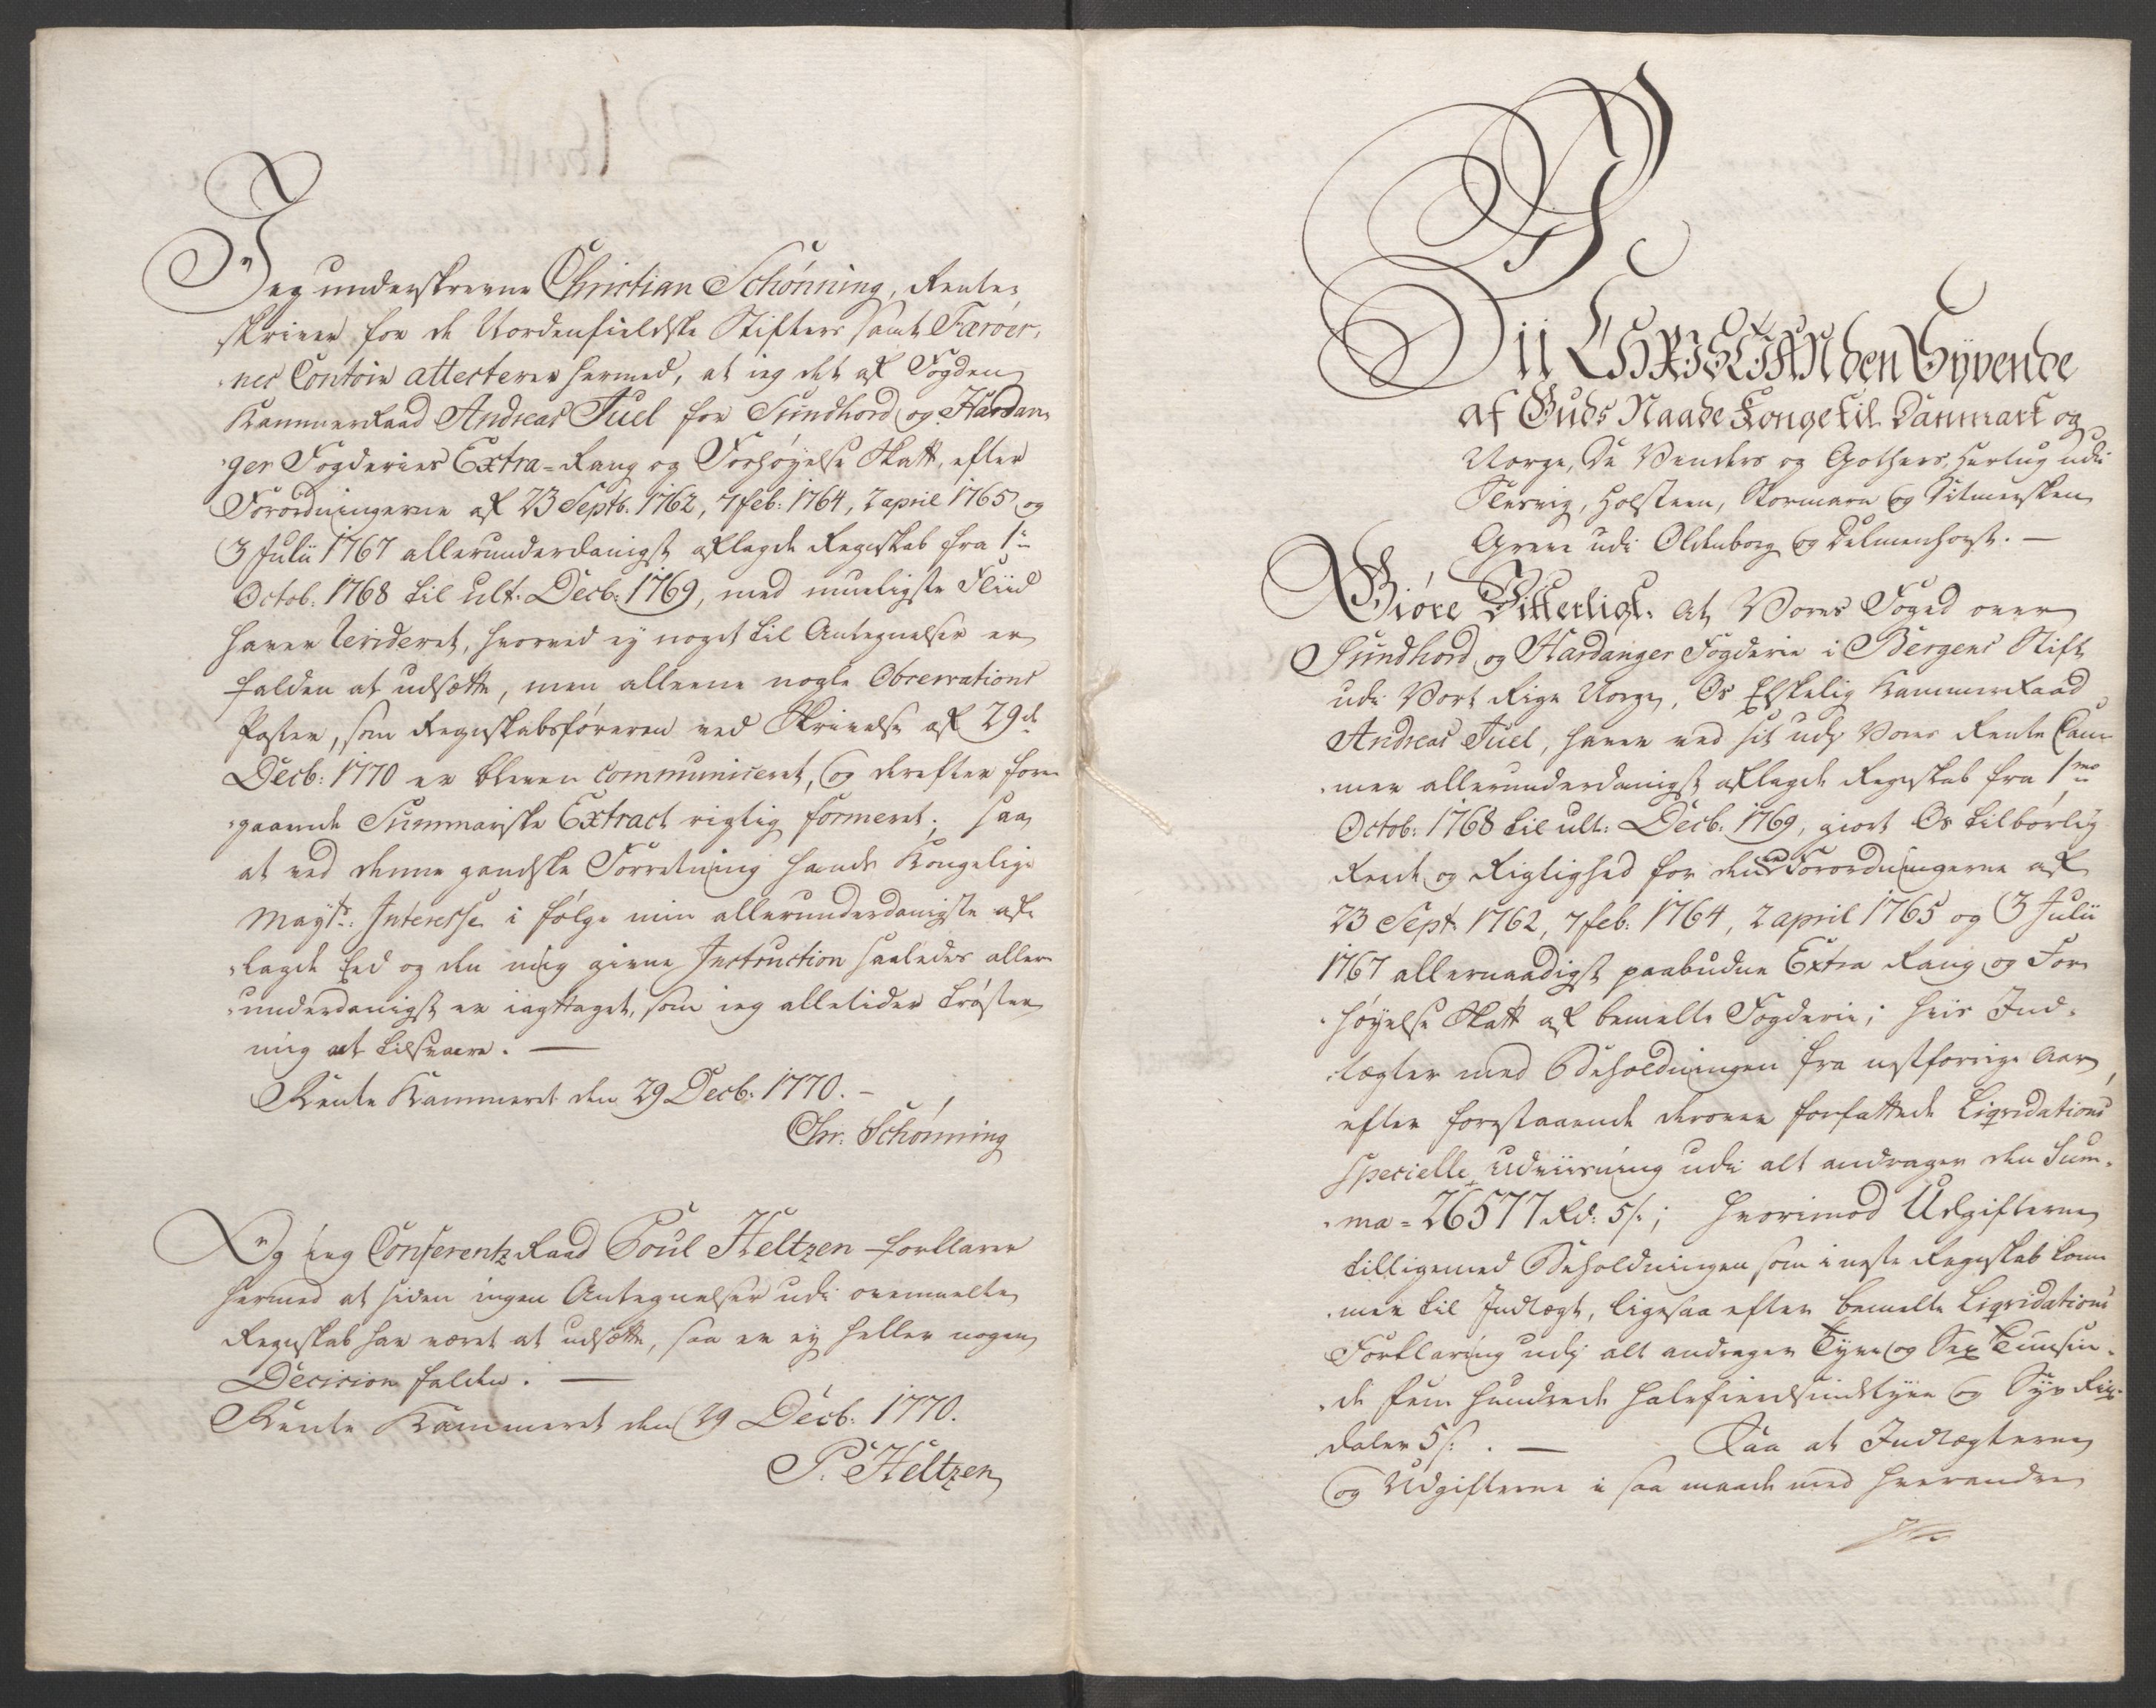 Jeg underskrevne Christian Schønning, Rente-
skriver for de Nordenfieldske Stifters samt Færøer-
nes Contoir attesterer hermed, at ieg det af Fogden
Kammerraad Andreas Juel for Sundhord og Hardan-
ger Fogderies Extra-Rang og Forhøyelse Skatt, efter
Forordningerne af 23 Septb. 1762, 7 feb: 1764, 2 april 1765 og
3 Julii 1767 allerunderdanigst aflagde Regnskab fra 1:
Octob: 1768 til ult. Decb: 1769, med mueligste Fliid
haver Revideret, hvorved ey noget til Antegnelser er
falden at udsætte, men alleene nogle Observations
Poster, som Regnskabsføreren ved Skrivelse af 29d
Decb: 1770 er bleven communiceret, og derefter fore-
gaaende Summariske Extract rigtig formeret; saa
at ved denne gandske Forretning hands Kongelige
Mayts: Interesse i følge min allerunderdanigste af-
lagde Eed og den mig givne Instruction saaledes aller-
underdanigst er iagttaget, som ieg alletider trøster
mig at tilsvare. —
Rente Kammeret den 29 Decb: 1770. –
Chr. Schønning
Og ieg Conferentz Raad Poul Heltzen forklarer
hermed at siden ingen Antegnelser udi ovenmelte
Regnskab har været at udsætte, saa er ey heller nogen
Decision falden. —
Rente Kammeret den 29 Decb: 1770.
P. Heltzen
Vii CHRISTIAN den Syvende
af Guds Naade Konge til Danmark og
Norge, De Venders og Gothers, Hertug udi
Slesvig, Holsteen, Stormarn og Ditmersken
Greve udi Oldenborg og Delmenhorst. —
Giøre Vitterligt. At Vores Foged over
Sundhord og Hardanger Fogderie i Bergens Stift
udi Vort Rige Norge, Os Elskelig Kammerraad
Andreas Juel, haver ved sit udj Vores Rente Cam-
mer allerunderdanigst aflagde Regnskab fra 1mo
Octob: 1768 til ult: Decb: 1769, giort Os tilbørlig
Reede og Rigtighed for den ved Forordningerne af
23 Sept 1762, 7 feb: 1764, 2 april 1765 og 3 Julii
1767 allernaadigst paabudne Extra Rang og For-
høyelse Skatt af bemelte Fogderie; hvis Ind-
tægter med Beholdningen fra nestforrige Aar,
efter forestaaende derover forfattede Liqvidations
specielle udviisning udi alt andrager den Sum-
ma = 26577 Rd: 5 s; hvorimod Udgifterne
tilligemed Beholdningen som i neste Regnskab kom-
mer til Indtægt, ligesaa efter bemelte Liqvidations
Forklaring udj alt andrager Tyve og Sex Tuusin-
de fem hundrede halvfierdsindstyve og Syv Rix-
daler 5 s. — Saa at Indtægterne
og Udgifterne i saa maade med hverandre